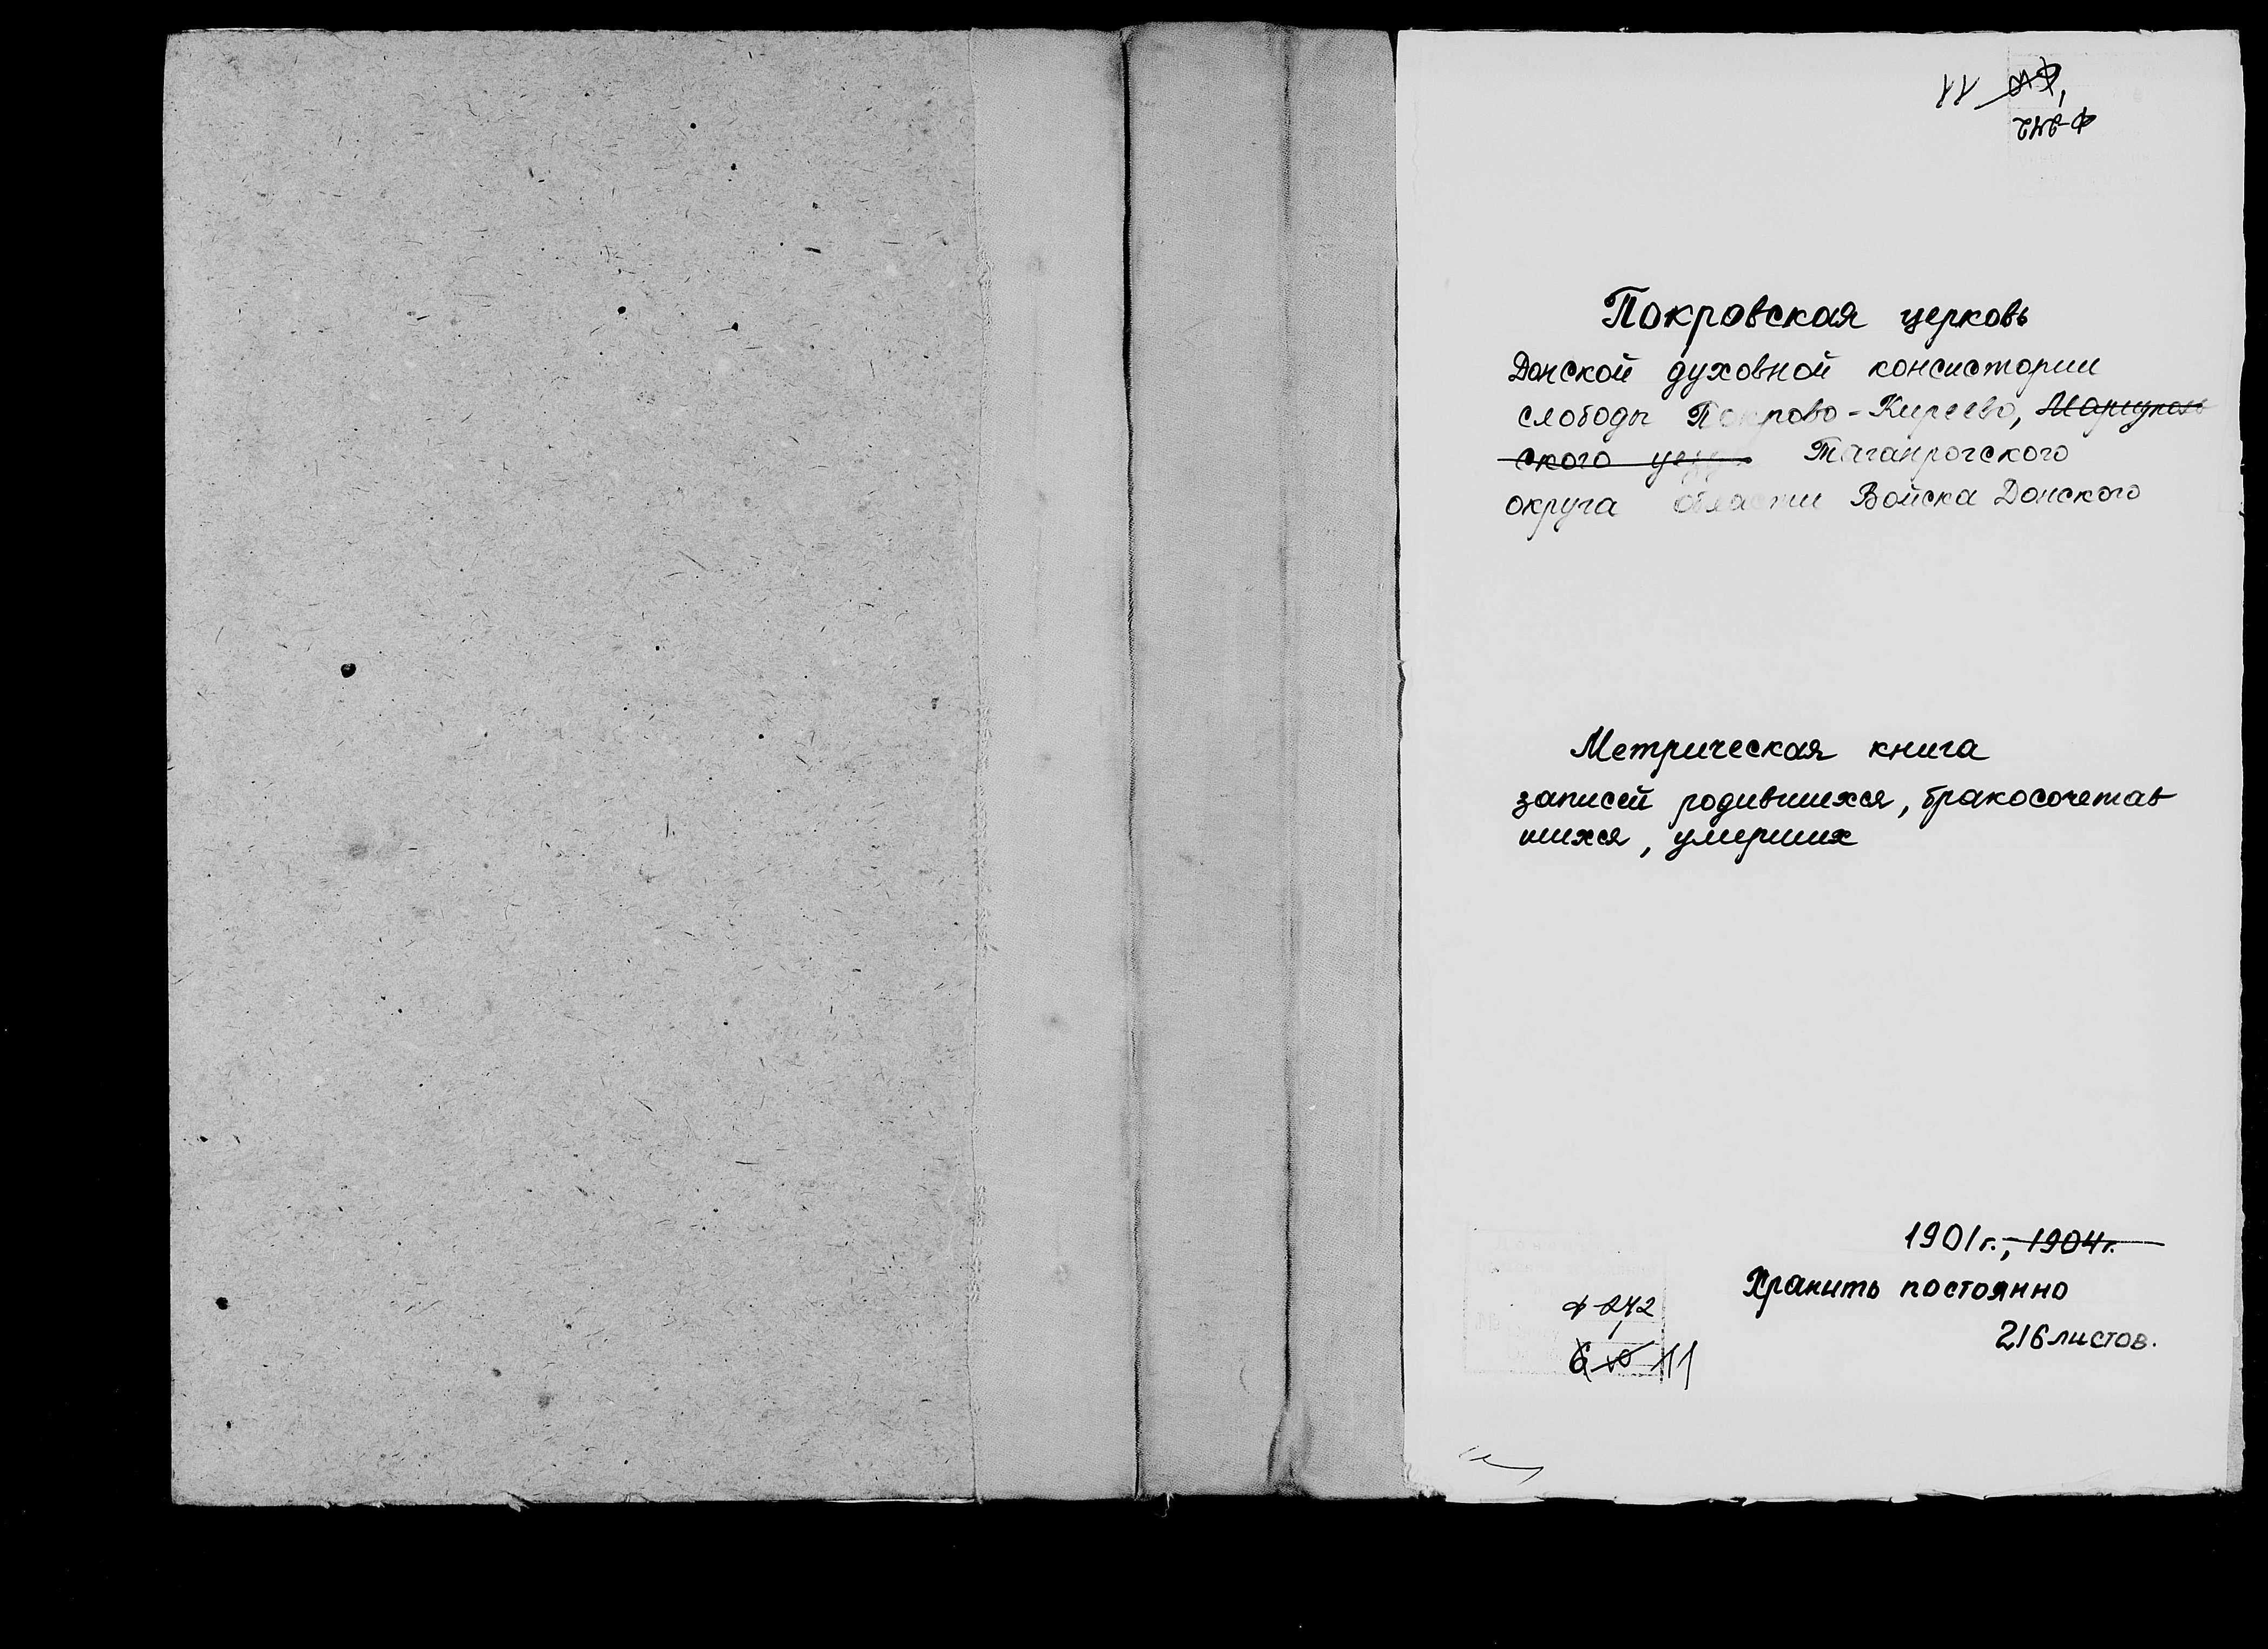 Покровская церковь
Донской духовной консистории
слободы Покрово-Киреево, Мариуполь
ского уезда Таганрогского
округа области Войска Донского
Метрическая книга
записей родившихся, бракосочетав
шихся, умерших
1901г., 1904г.
Хранить постоянно
216 листов.
ф 272
11